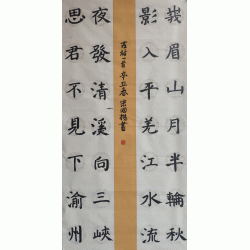 峩眉山月半輪秋
影入平羌江水流
夜發清溪向三峽
思君不見下渝州
詩一首辛丑春書